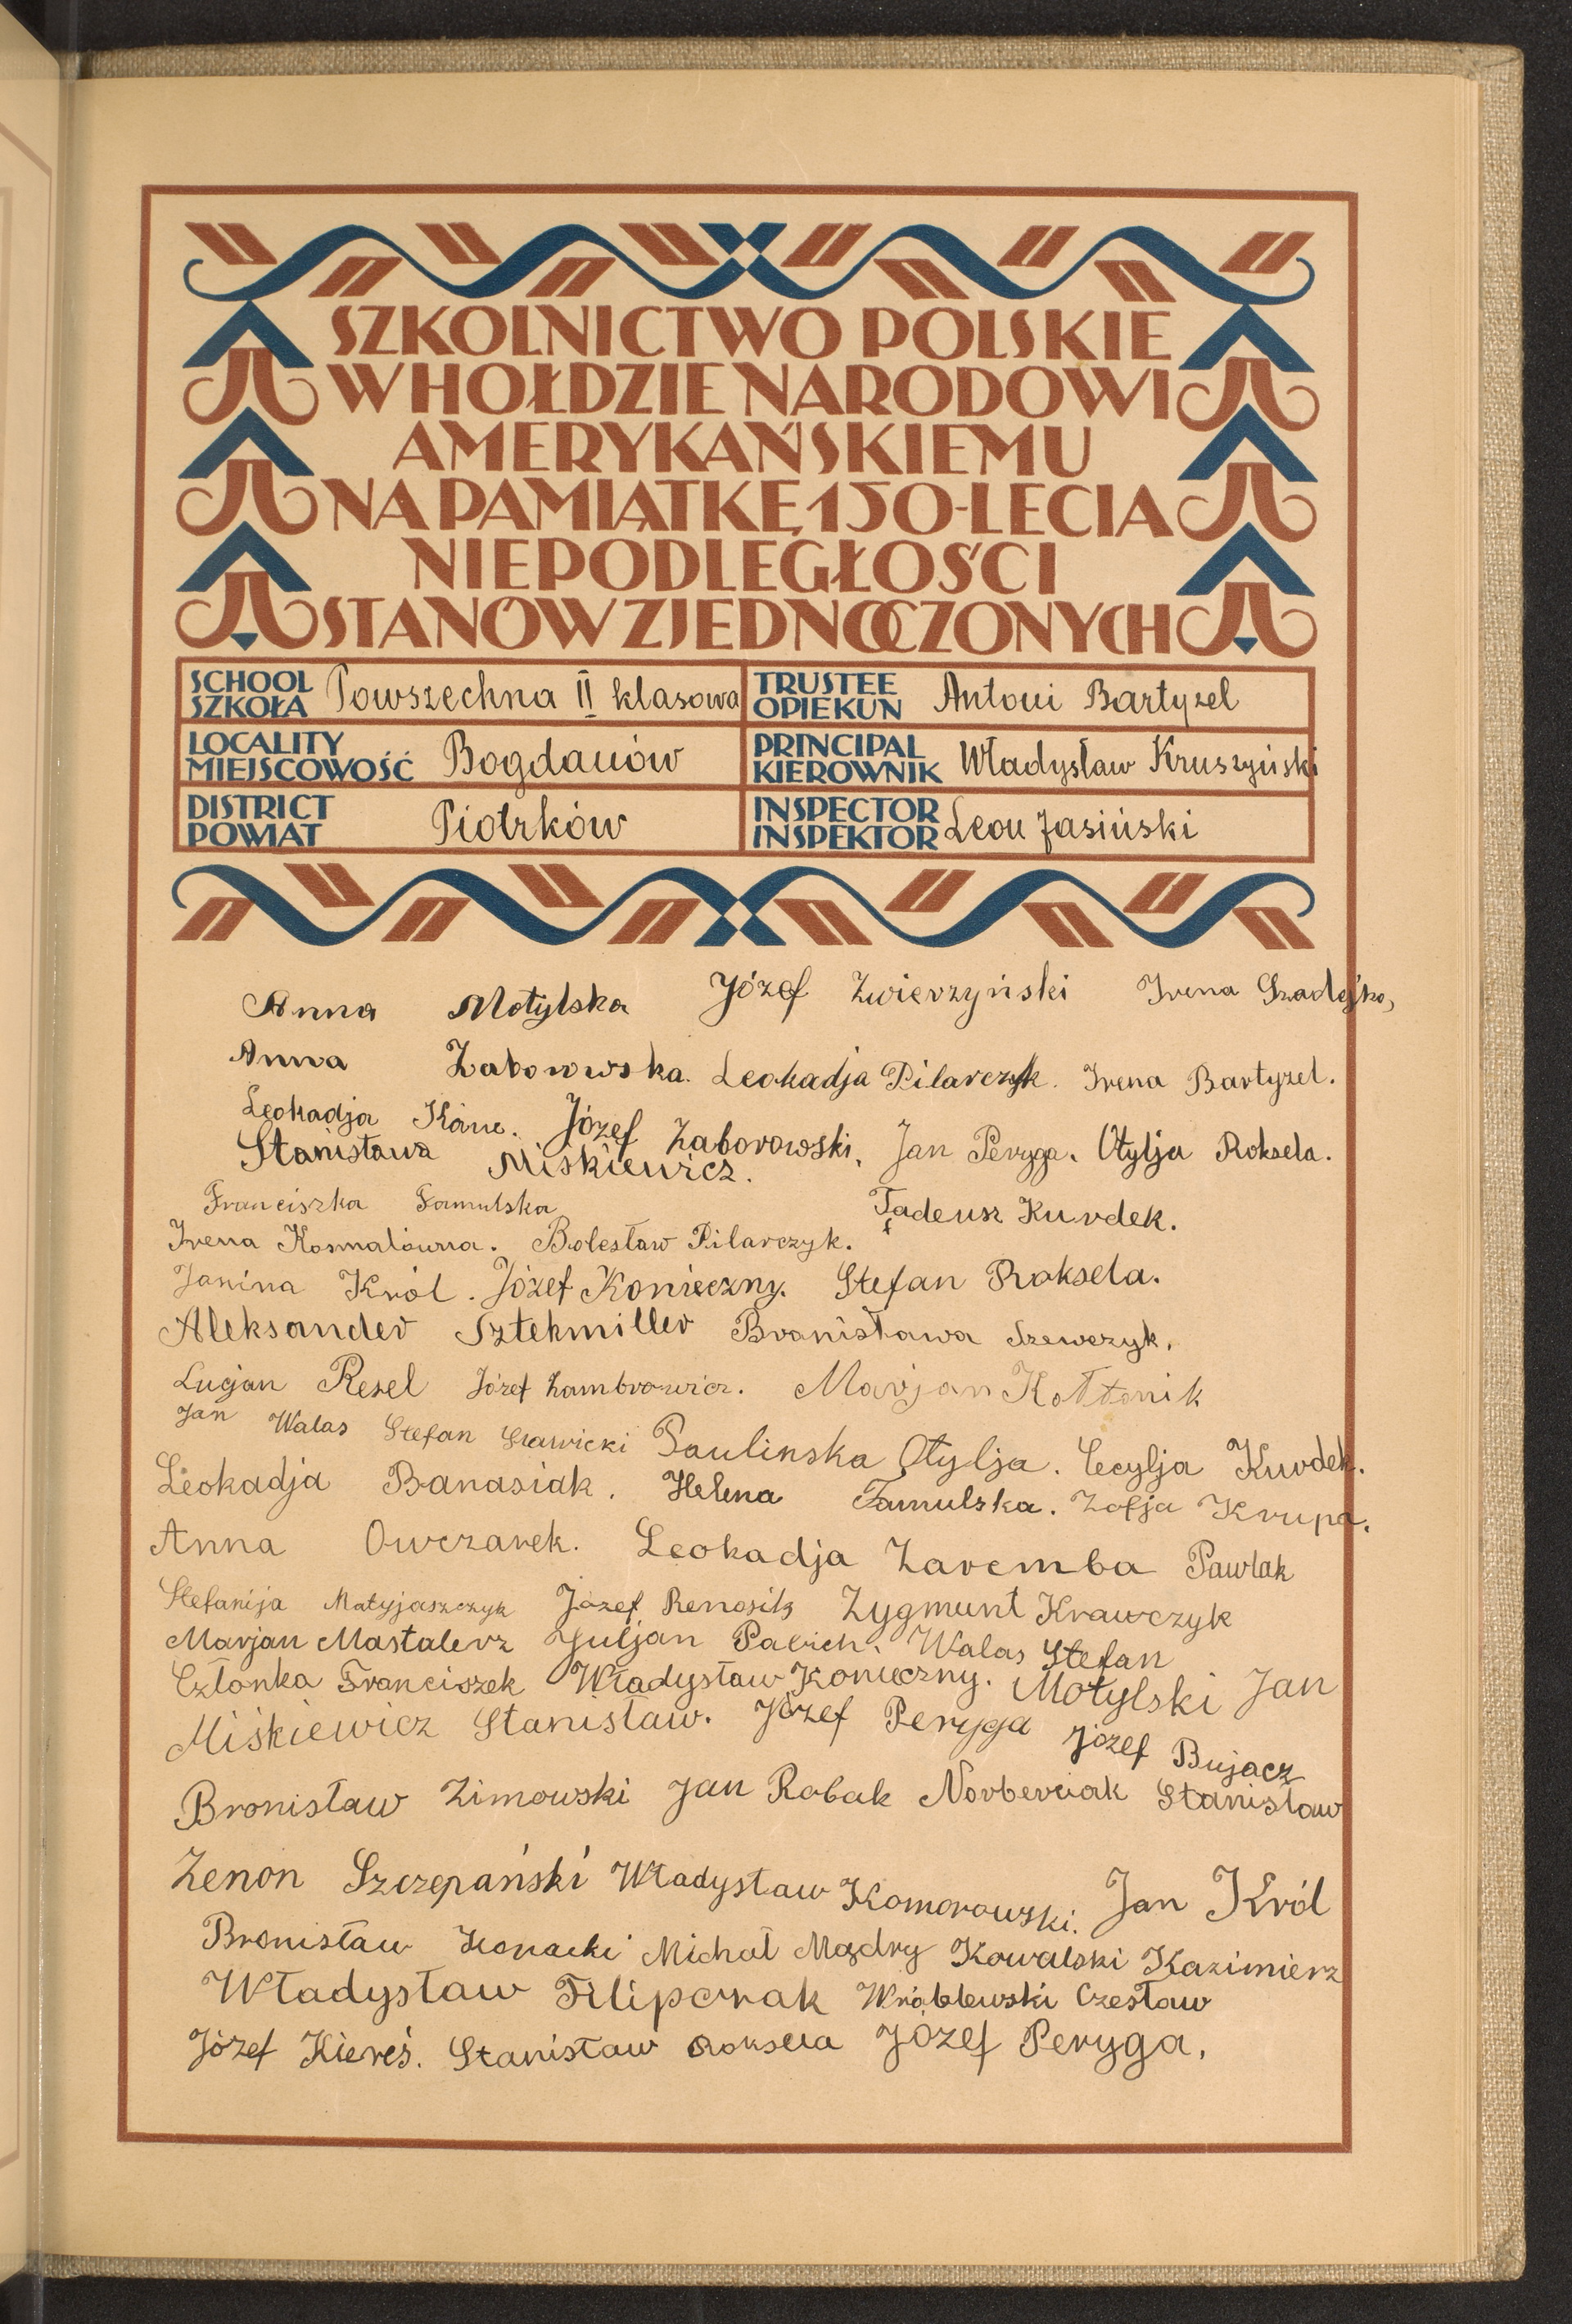 SZKOLNICTWO POLSKIE
W HOŁDZIE NARODOWI
AMERYKAŃSKIEMU
NA PAMIĄTKĘ 150-LECIA
NIEPODLEGŁOŚCI
STANÓW ZJEDNOCZONYCH
SCHOOL SZKOŁA Powszechna II klasowa
TRUSTEE OPIEKUN Antoni Bartyzel
LOCALITY MIEJSCOWOŚĆ Bogdanów
PRINCIPAL KIEROWNIK Władysław Kruszyński
DISTRICT POWIAT Piotrków
INSPECTOR INSPEKTOR Leon Jasiński
Anna Motylska Józef Zwierzyński Irena
Anna Zaborowska. Leokadja Pilarczyk. Irena Bartyzel.
Leokadja Józef Zaborowski, Jan Peryga. Otylja Roksela.
Stanisława Miśkiewicz.
Franciszka Famulska Tadeusz Kurdek.
Irena Kosmalówna. Bolesław Pilarczyk.
Janina Król. Józef Konieczny. Stefan Roksela.
Aleksander Sztekmiller Bronisława Szewczyk.
Lucjan Resel Józef Zambrowicz. Marjan Kołtonik
Jan Walas Stefan Sławicki Paulinska Otylja. Cecylja Kurdek.
Leokadja Banasiak. Helena Famulska. Zofja Krupa.
Anna Owczarek. Leokadja Zaremba Pawlak
Stefanija Matyjaszczyk Józef Renosik Zygmunt Krawczyk
Marjan Mastalerz Juljan Pabich. Walas Stefan
Członka Franciszek Władysław Konieczny. Motylski Jan
Miśkiewicz Stanisław. Józef Peryga Józef Bujacz
Bronisław Zimowski Jan Robak Norberciak Stanisław
Zenon Szczepański Władysław Komorowski. Jan Król
Bronisław Michał Mądry Kowalski Kazimierz
Władysław Filipczak Wróblewski Czesław
Józef Kiereś. Stanisław Roksela Józef Peryga.